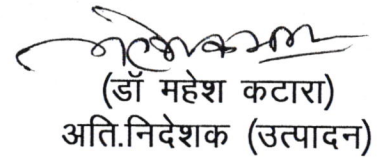 (डॉ महेश कटारा)
अति.निदेशक (उत्पादन)